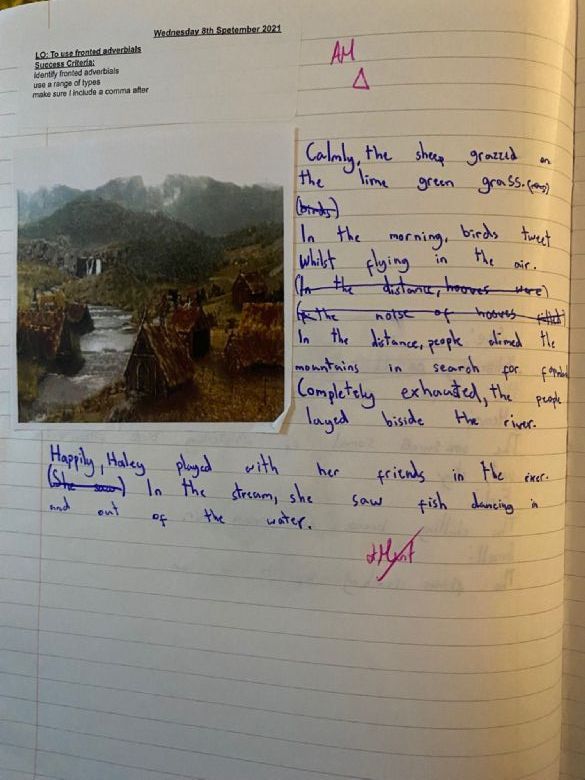 Wednesday 8th Spetember 2021
LO: To use fronted adverbials
Success Criteria:
Identify fronted adverbials
use a range of types
make sure I include a comma after
AM
Calmly, the sheep grazzed on
the lime green grass.
(birds)
In the morning, birds tweet
whilst flying in the air.
(In the distance, hooves were)
the noise of hooves
In the distance, people climed the
mountains in search for
Completely exhausted, the people
layed biside the river.
Happily, Haley played with her friends in the river.
(She saw) In the stream, she saw fish dancing in
and out of the water.